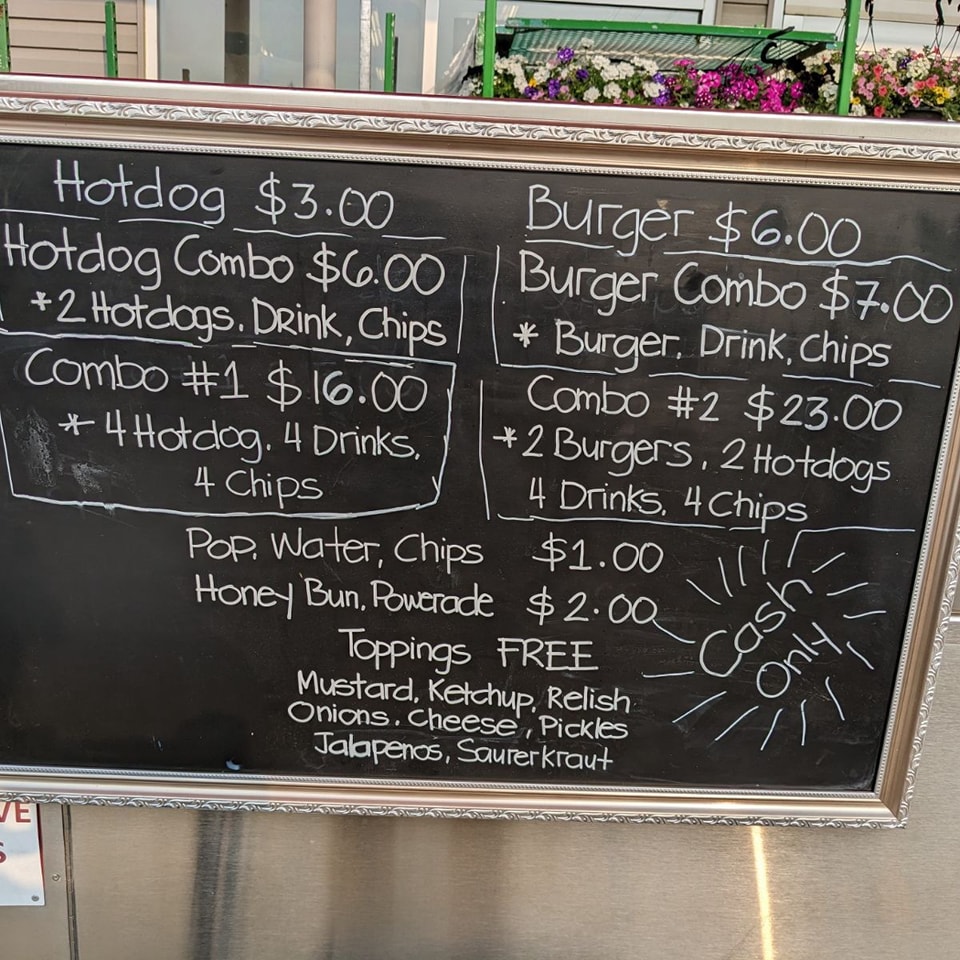 Hotdog $3.00
Hotdog Combo $6.00
*2 Hotdogs. Drink, Chips
Combo #1 $16.00
*4 Hotdog. 4 Drinks.
4 Chips
Burger $6.00
Burger Combo $7.00
* Burger. Drink, Chips
Combo #2 $23.00
*2 Burgers. 2 Hotdogs
4 Drinks. 4 Chips
Pop, Water, Chips $1.00
Honey Bun, Powerade $2.00
Toppings FREE
Mustard, Ketchup, Relish
Onions. Cheese, Pickles
Jalapenos, Saurerkraut
Cash
Only